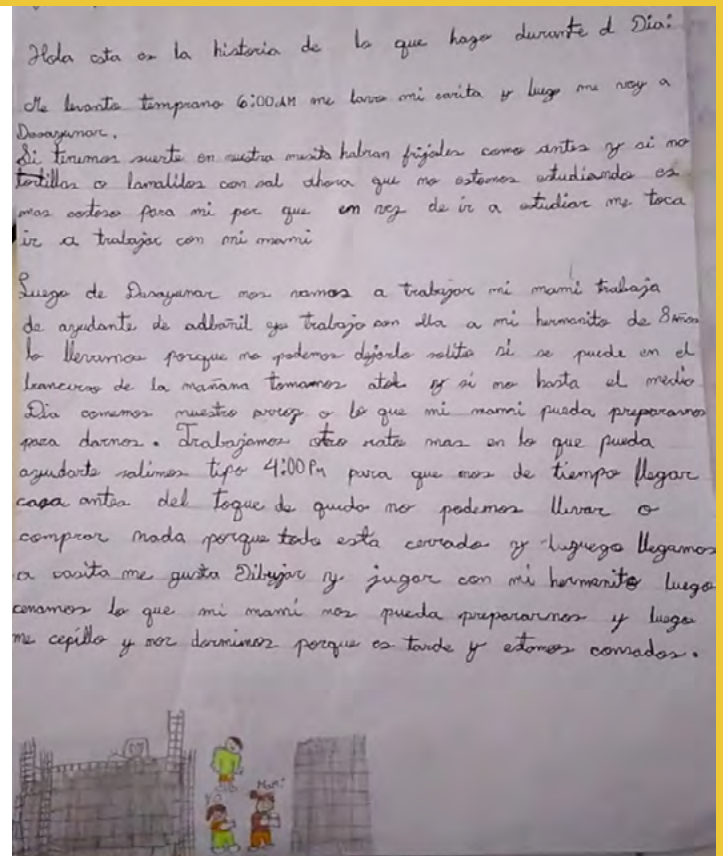 Hola esta es la historia de lo que hago durante el Dia:
Me levanto temprano 6:00AM me lavo mi carita y luego me voy a
Desayunar.
Si tenemos suerte en nuestra mesita habran frijoles como antes y si no
tortillas o tamalitos con sal ahora que no estamos estudiando es
mas costoso para mi por que en vez de ir a estudiar me toca
ir a trabajar con mi mami
Luego de Desayunar nos vamos a trabajar mi mami trabaja
de ayudante de adbañil yo trabajo con ella a mi hermanito de 8 años
lo llevamos porque no podemos dejarlo solito si se puede en el
trancurso de la mañana tomamos atol y si no hasta el medio
Dia comemos nuestro arroz o lo que mi mami pueda prepararnos
para darnos. Trabajamos otro rato mas en lo que pueda
ayudarte salimos tipo 4:00 Pm para que nos de tiempo llegar
casa antes del toque de quedo no podemos llevar o
comprar nada porque todo esta cerrado y luguego llegamos
a casita me gusta Dibujar y jugar con mi hermanito luego
cenamos lo que mi mami nos pueda prepararnos y luego
me cepillo y nos dormimos porque es tarde y estamos cansados.
Yo
Mami